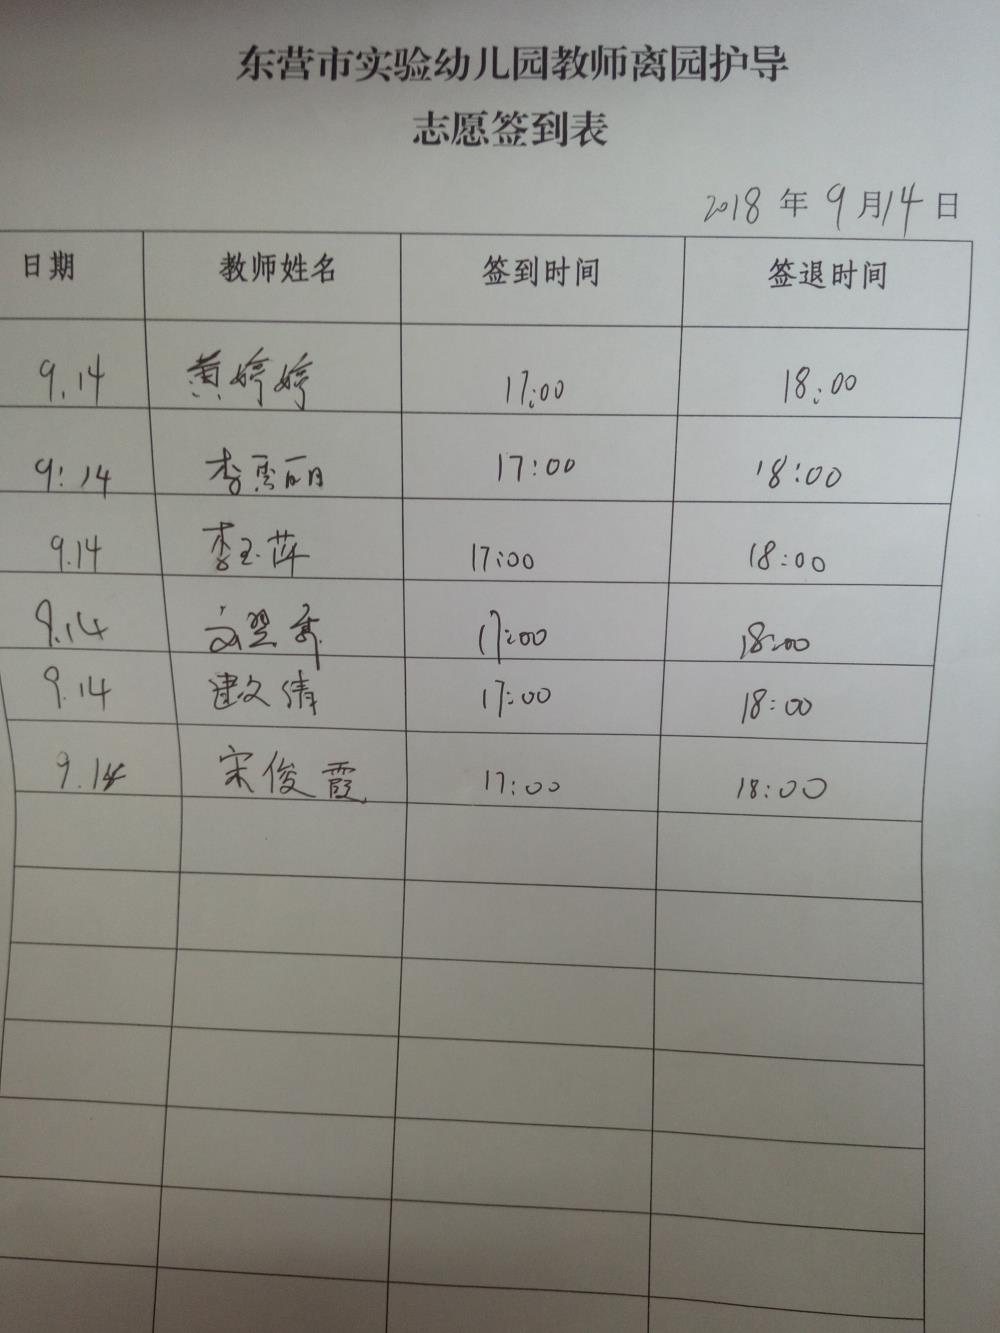 东营市实验幼儿园教师离园护导
志愿签到表
2018 年 9 月 14 日
日期 教师姓名 签到时间 签退时间
9.14 黄婷婷 17:00 18:00
9:14 李秀丽 17:00 18:00
9.14 李玉萍 17:00 18:00
9.14 17:00 18:00
9.14 建文倩 17:00 18:00
9.14 宋俊霞 17:00 18:00